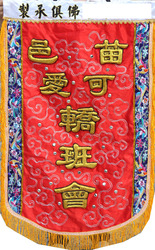 佛俱承製
苗邑
可愛
轎
班
會